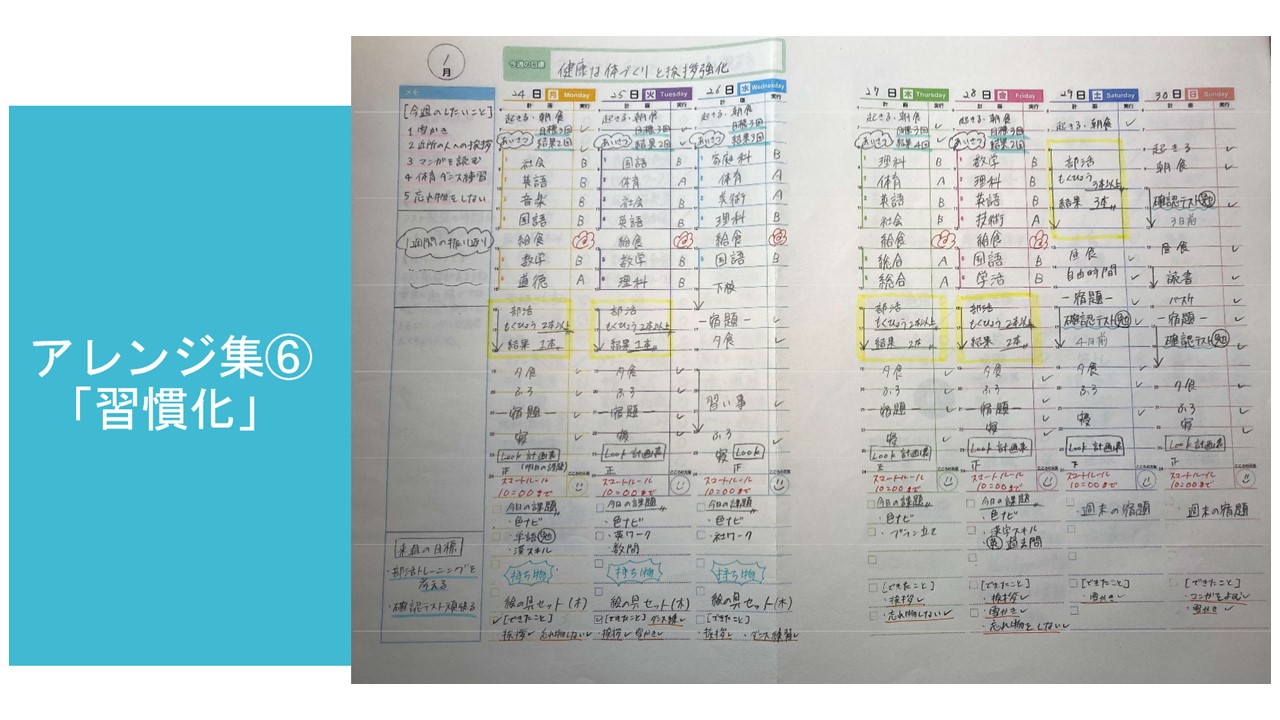 アレンジ集⑥
「習慣化」
1
月
今週の目標
健康な体づくりと挨拶強化
メモ
[今週のしたいこと]
1 雪かき
2 近所の人への挨拶
3 マンガを読む
4 体育ダンス練習
5 忘れ物をしない
1週間の振り返り
来週の目標
・部活トレーニングを
考える
・確認テスト頑張る
24 日 月 Monday
計画 実行
起きる・朝食
目標3回
あいさつ 結果2回
社会 B
英語 B
音楽 B
国語 B
給食
数学 B
道徳 A
部活
もくひょう 2本以上
結果 1本
夕食
ふろ
宿題
寝
Look 計画表
正 (明日の課題)
スマートルール
10:00まで
今日の課題
・色ナビ
・単語勉
・漢スキル
持ち物
絵の具セット(木)
[できたこと]
挨拶 忘れ物しない
25 日 火 Tuesday
計画 実行
起きる・朝食
目標3回
あいさつ 結果2回
国語 B
体育 A
社会 B
英語 B
給食
数学 B
理科 B
部活
もくひょう 2本以上
結果 1本
夕食
ふろ
宿題
寝
Look 計画表
正
スマートルール
10:00まで
今日の課題
・色ナビ
・英ワーク
数問
持ち物
絵の具セット(木)
[できたこと] ダンス練
・挨拶 雪かき
26 日 水 Wednesday
計画 実行
起きる・朝食
目標3回
あいさつ 結果3回
家庭科 B
体育 A
美術 A
理科 B
給食
国語 B
下校
宿題
夕食
習い事
ふろ
寝 Look
正
スマートルール
10:00まで
今日の課題
・色ナビ
・社ワーク
持ち物
絵の具セット(木)
[できたこと]
・挨拶 ・ダンス練習
27 日 木 Thursday
計画 実行
起きる・朝食
目標3回
あいさつ 結果4回
理科 B
体育 A
英語 B
社会 B
給食
総合 A
総合 A
部活
もくひょう 2本以上
結果 2本
夕食
ふろ
宿題
寝
Look 計画表
正
スマートルール
10:00まで
今日の課題
・色ナビ
・プラン立て
[できたこと]
・挨拶
・忘れ物しない
28 日 金 Friday
計画 実行
起きる・朝食
目標3回
あいさつ 結果2回
数学 B
理科 B
英語 B
技術 A
給食
国語 B
学活 B
部活
もくひょう 2本以上
結果 2本
夕食
ふろ
宿題
寝
Look 計画表
正
スマートルール
10:00まで
今日の課題
・色ナビ
・漢字スキル
・英 過去問
[できたこと]
・挨拶
・雪かき
・忘れ物をしない
29 日 土 Saturday
計画 実行
起きる・朝食
部活
もくひょう
3本以上
結果 3本
昼食
自由時間
宿題
確認テスト勉
4日前
夕食
ふろ
寝
Look 計画表
スマートルール
10:00まで
・週末の宿題
[できたこと]
・雪かき
30 日 日 Sunday
計画 実行
起きる
朝食
確認テスト勉
3日前
昼食
読書
バスケ
宿題
確認テスト勉
夕食
ふろ
寝
Look 計画表
正
スマートルール
10:00まで
週末の宿題
[できたこと]
・マンガをよむ
・雪かき